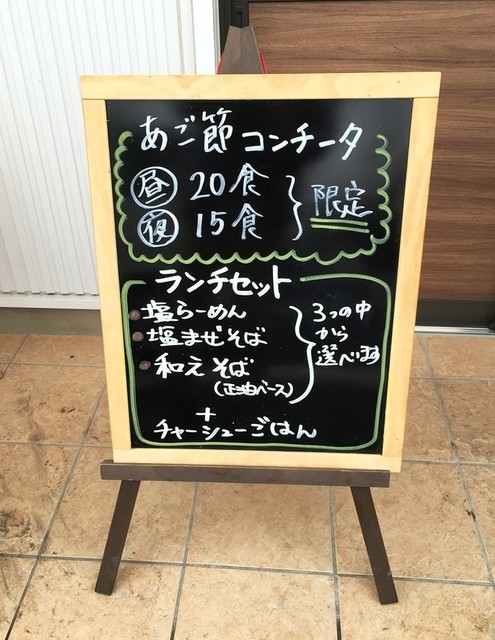 あご節コンチータ
昼 20食
夜 15食
限定
ランチセット
塩らーめん
塩まぜそば
和えそば
(正油ベース)
3つの中
から
選べます
+
チャーシューごはん